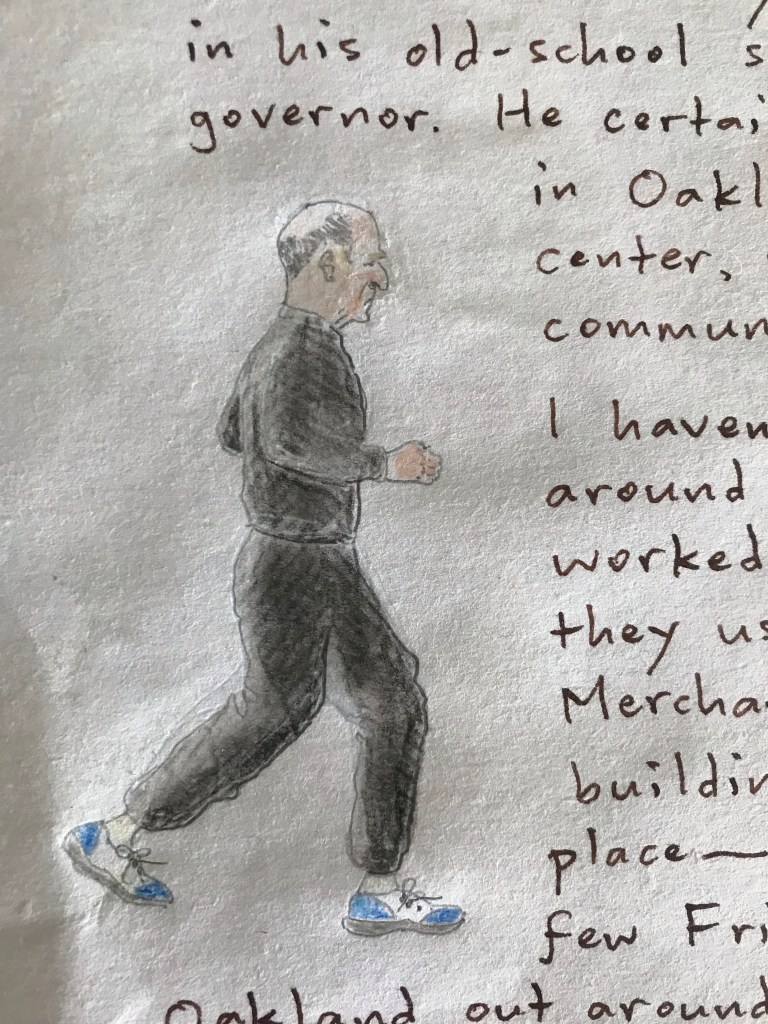 in his old-school s
governor. He certai
in Oakl
center,
commun
I haven
around
worked
they us
Mercha
buildin
place—
few Fri
Oakland out around